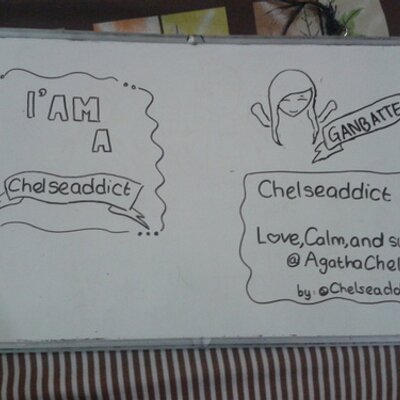 I'AM
A
Chelseaddict
GANBATTE
Chelseaddict
Love, Calm, and
@AgathaChel
by: @Chelseadd